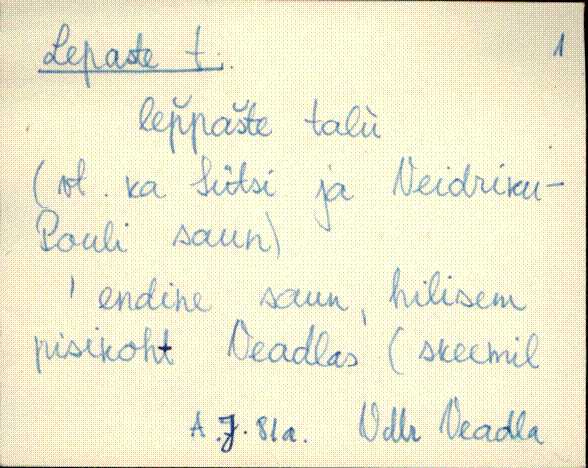 Lepaste t. 1
lep̆p̆ašte talù
(vt. ka Sütsi ja Neidriku-
Pouli saun)
' endine saun, hilisem
pisikoht Veadlas (skeemil
A.J. 81a. Vdlr Veadla